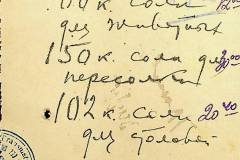 к. соли
для животных
150 к. соли для
пересолки
102 к. соли 20 40
для столовой